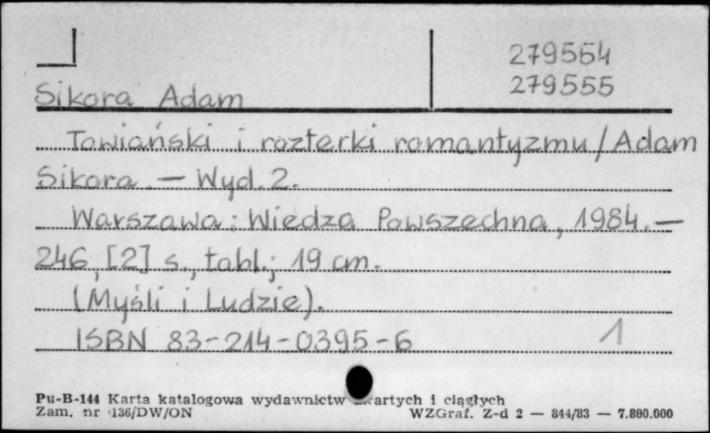 279554
279555
Sikora Adam
Towiański i rozterki romantyzmu / Adam
Sikora. — Wyd. 2.
Warszawa : Wiedza Powszechna, 1984. —
246, [2] s., tabl.; 19 cm.
(Myśli i Ludzie).
ISBN 83-214-0395-6
1
Pu-B-144 Karta katalogowa wydawnictw zwartych i ciągłych
Zam. nr 136/DW/ON WZGraf. Z-d 2 — 844/83 — 7.800.000